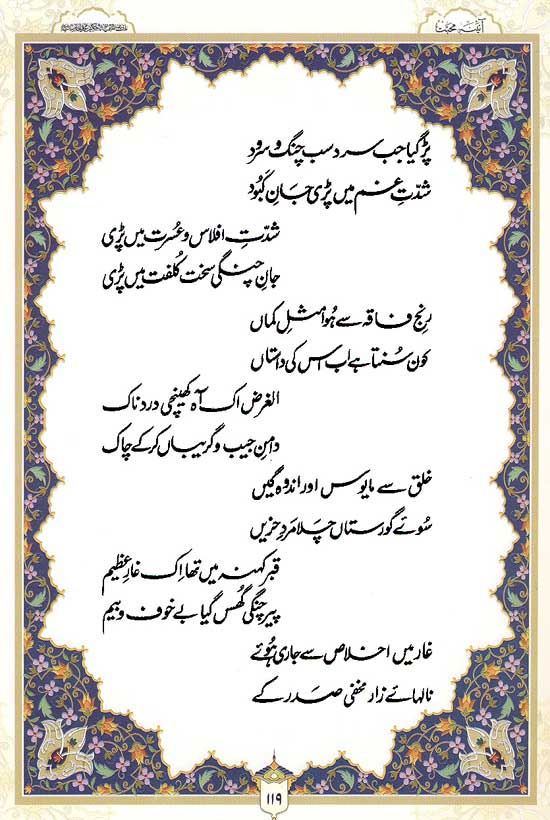 آئینۂ محبت
پڑگیا جب سرد سب چنگ و سرود
شدّتِ غم میں پڑی جانِ کبُود
شدّتِ افلاس و عُسرت میں پڑی
جانِ چنگی سخت کُلفت میں پڑی
رنجِ فاقہ سے ہُوا مثلِ کماں
کون سُنتا ہے اب اس کی داستاں
الغرض اک آہ کھینچی دردناک
دامنِ جیب و گریباں کرکے چاک
خلق سے مایوس اور اندوہ گیں
سُوئے گورستاں چلا مردِ حزیں
قبرِ کہنہ میں تھا اِک غارِ عظیم
پیرِ چنگی گھُس گیا بے خوف و بیم
غار میں اخلاص سے جاری ہُوئے
نالہائے زار مخفی صدر کے
۱۱۹